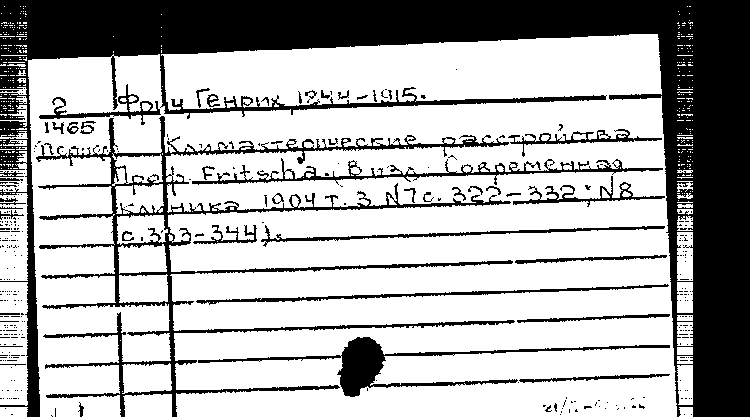 2 Фрич, Генрих, 1844-1915.
1465
Период Климактерические расстройства.
Проф. Fritsch'a. (В изд. Современная
клиника 1904 т. 3 N7 с. 322-332; N8
с. 333-344).